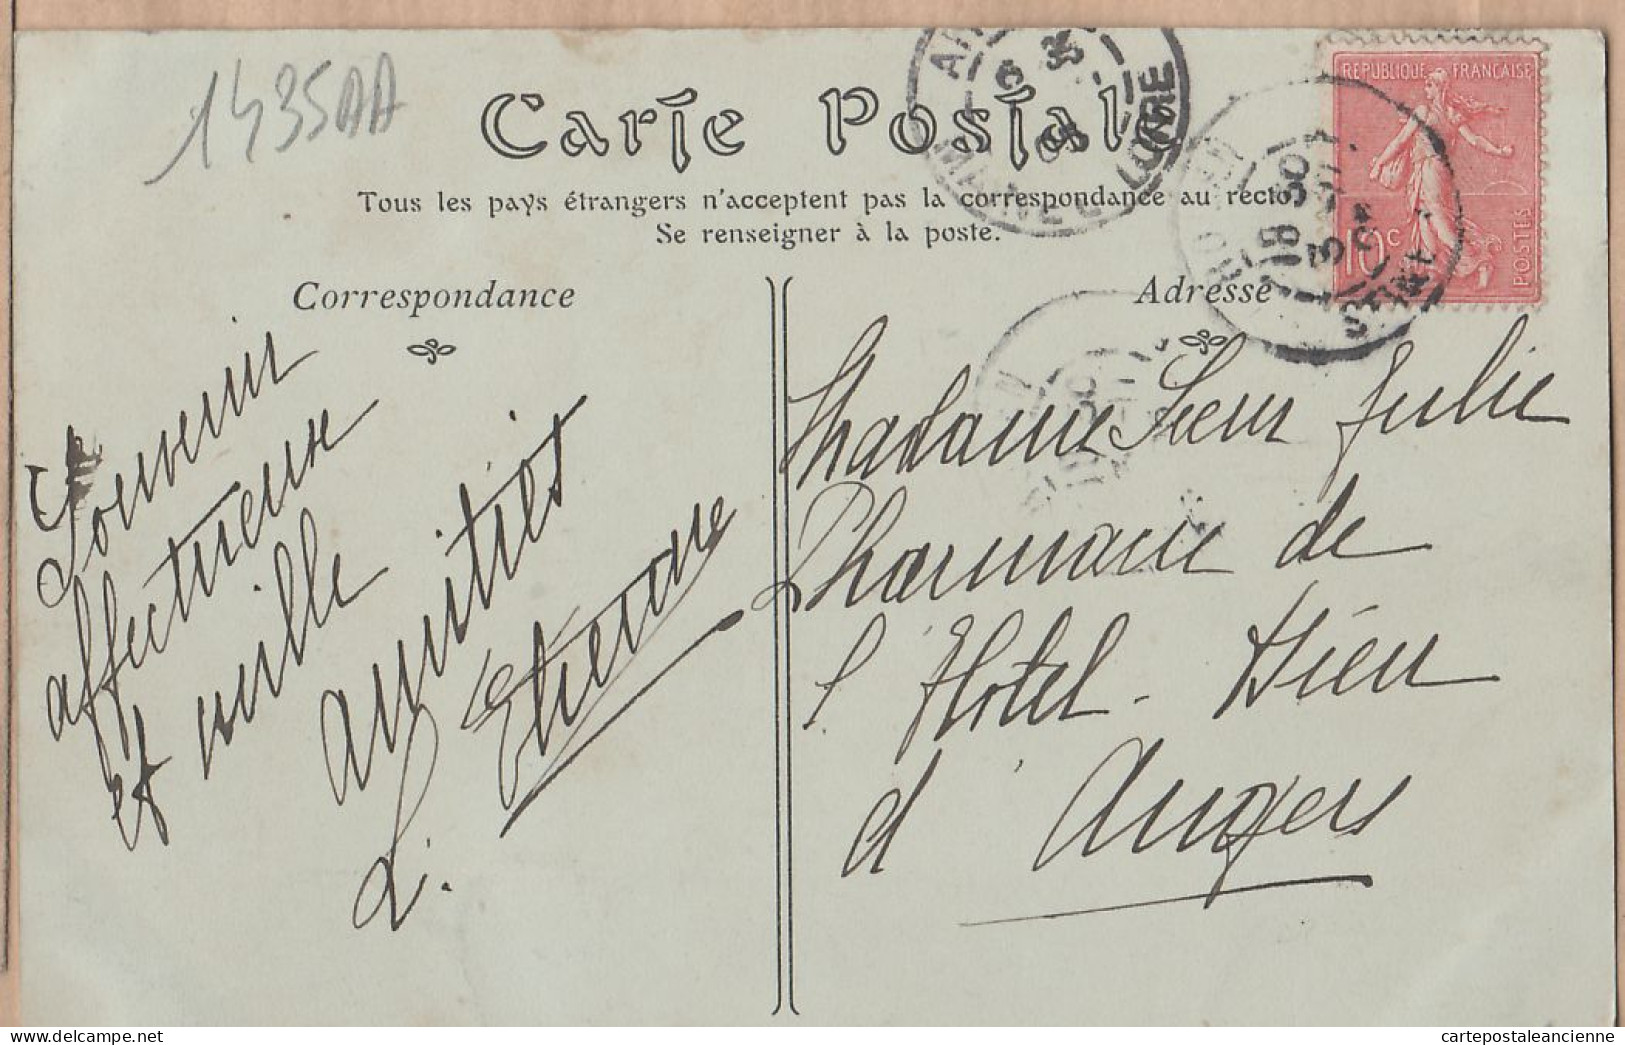 1435AA
Carte Postale
Tous les pays étrangers n'acceptent pas la correspondance au recto.
Se renseigner à la poste.
Correspondance
Souvenir
affectueux
et mille
amitiés
L. Etienne
Adresse
Madame Sœur Julie
Pharmacie de
l'Hotel-Dieu
d'Angers
REPUBLIQUE FRANÇAISE
10c
POSTES
MAINE ET LOIRE
18 30
cartepostaleancienne